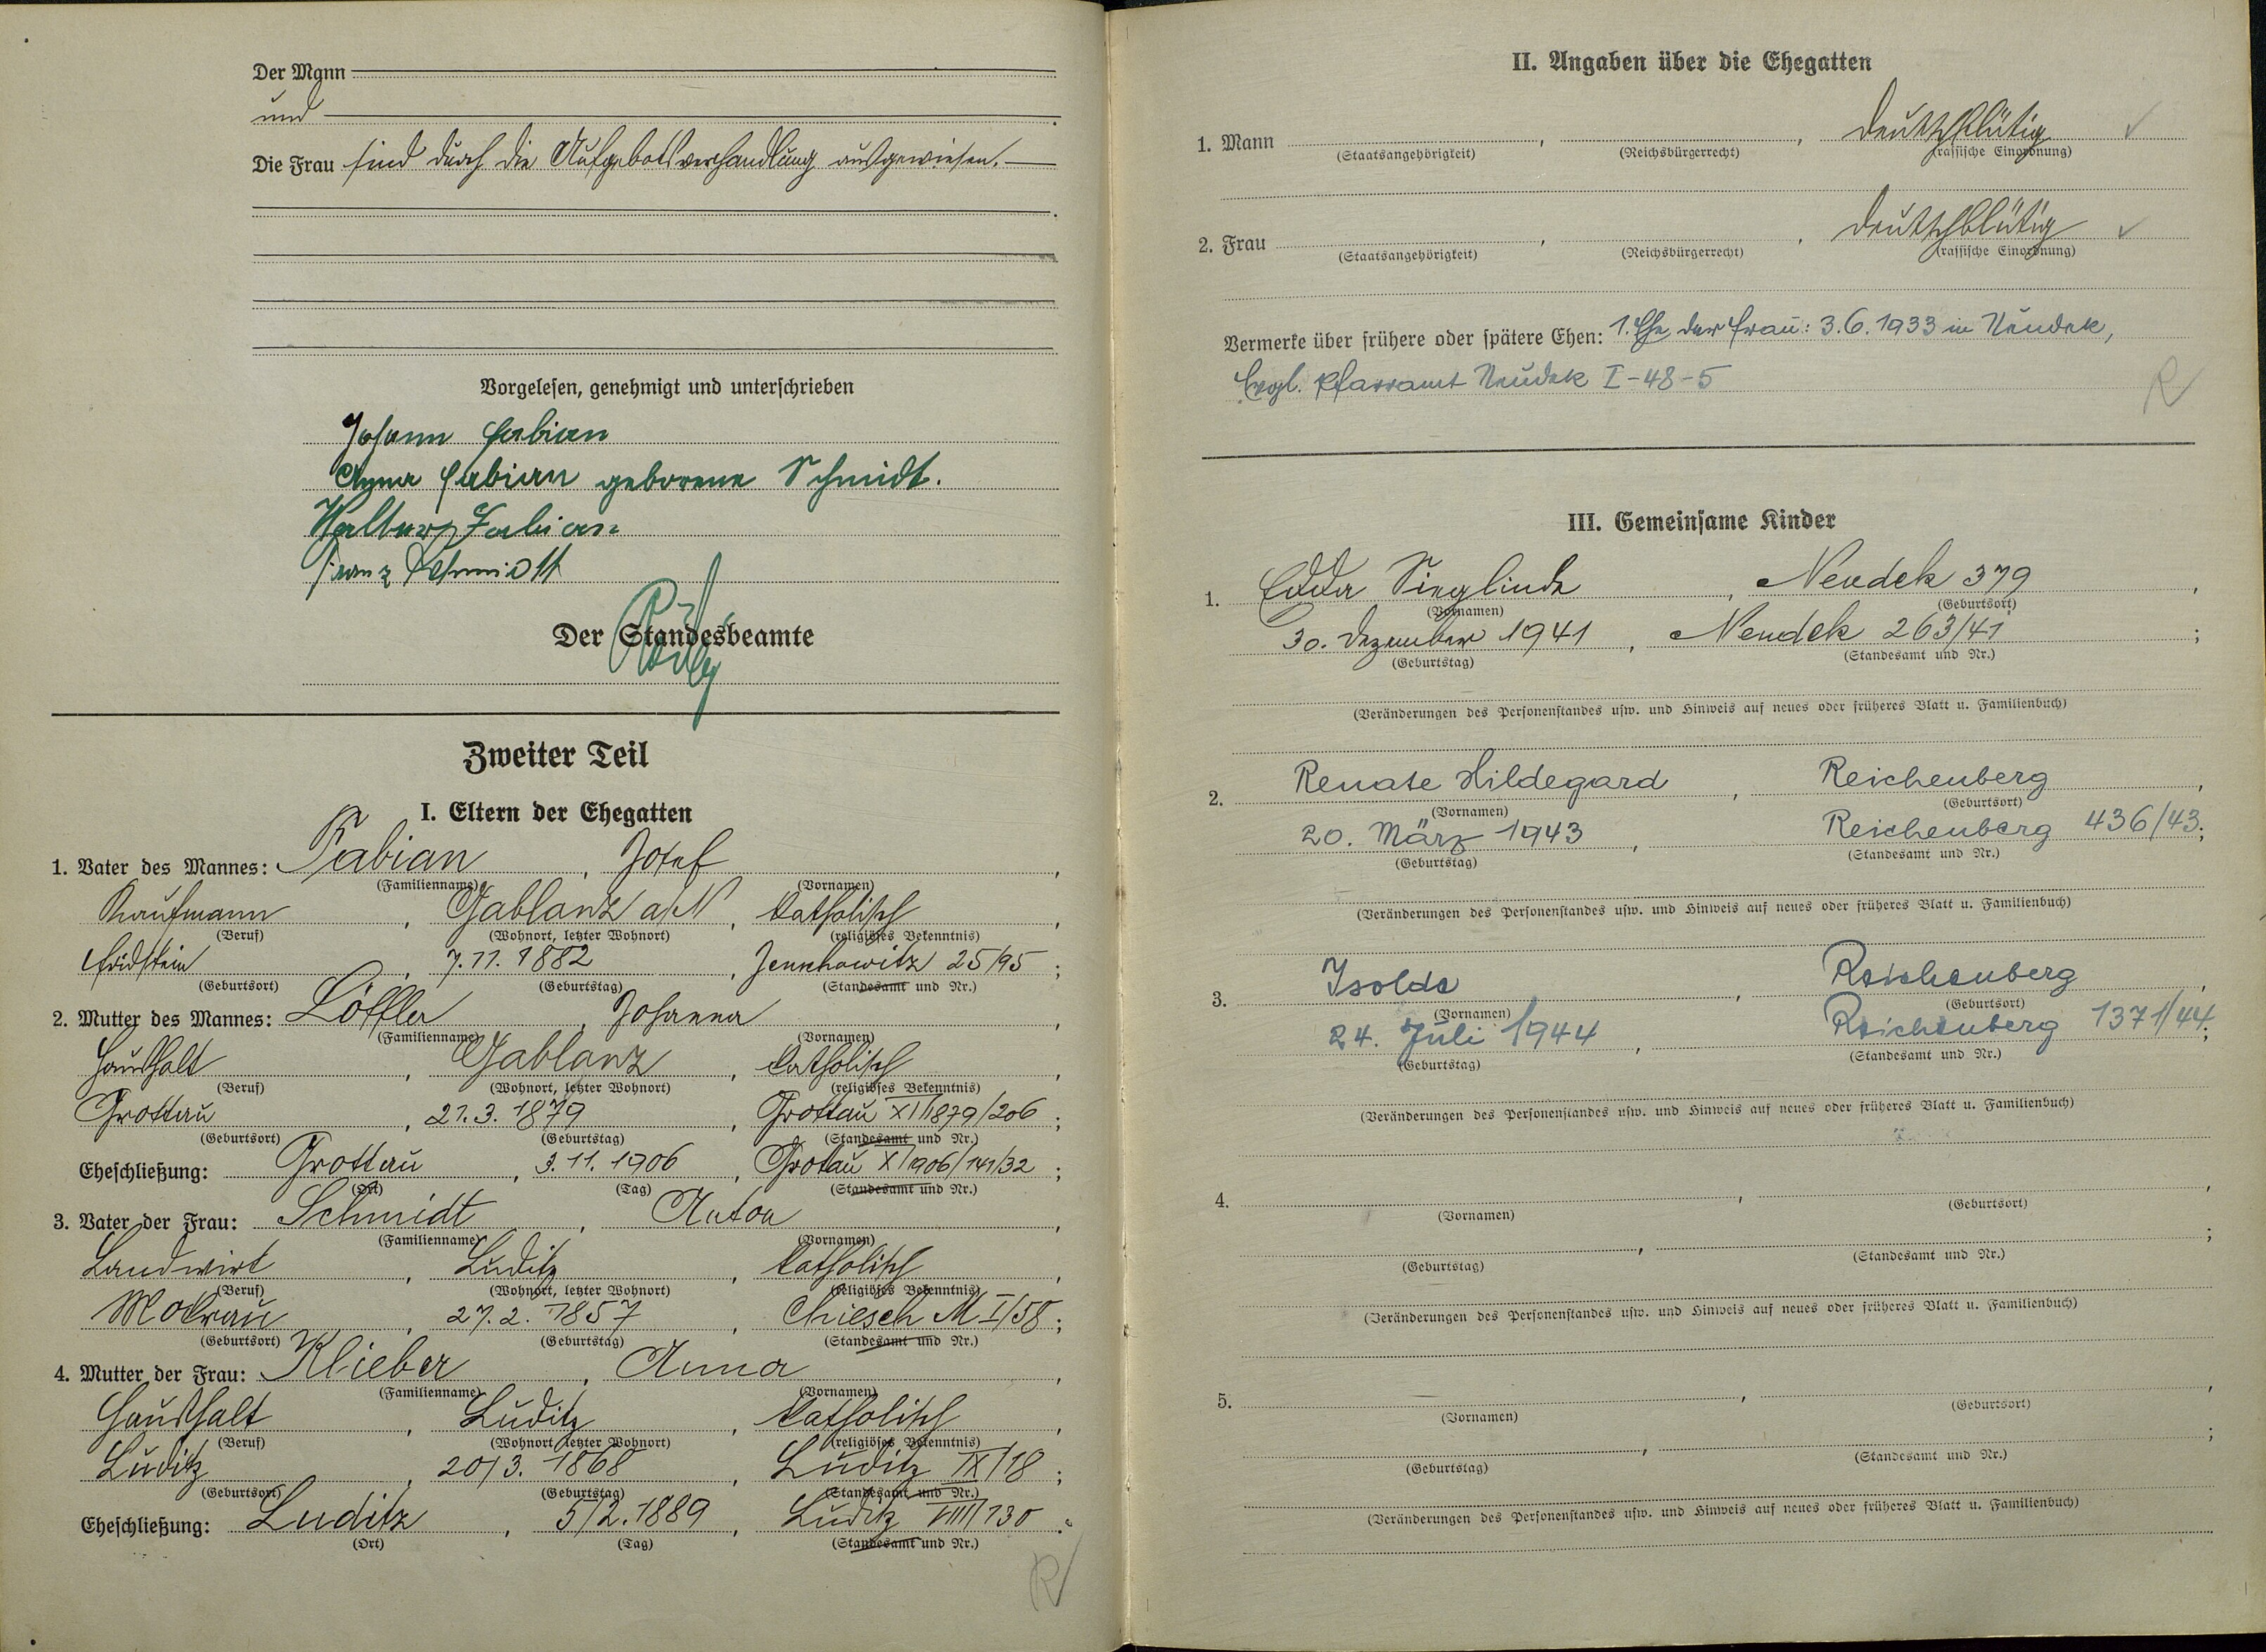 Der Mann
und
Die Frau sind durch die Aufgebotsverhandlung ausgewiesen.
Vorgelesen, genehmigt und unterschrieben
Johann Fabian
Anna Fabian geborene Schmidt.
Walter Fabian
Franz Schmidt
Der Standesbeamte
Zweiter Teil
I. Eltern der Ehegatten
1. Vater des Mannes: Fabian, Josef,
(Familienname) (Vornamen)
Kaufmann, Gablonz a/N, katholisch,
(Beruf) (Wohnort, letzter Wohnort) (religiöses Bekenntnis)
Fridstein, 7.11.1882, Jenschowitz 25/95;
(Geburtsort) (Geburtstag) (Standesamt und Nr.)
2. Mutter des Mannes: Löffler, Johanna,
(Familienname) (Vornamen)
Haushalt, Gablonz, katholisch,
(Beruf) (Wohnort, letzter Wohnort) (religiöses Bekenntnis)
Grottau, 21.3.1879, Grottau XI/1879/206;
(Geburtsort) (Geburtstag) (Standesamt und Nr.)
Eheschließung: Grottau, 3.11.1906, Grottau X/1906/141/32;
(Ort) (Tag) (Standesamt und Nr.)
3. Vater der Frau: Schmidt, Anton,
(Familienname) (Vornamen)
Landwirt, Luditz, katholisch,
(Beruf) (Wohnort, letzter Wohnort) (religiöses Bekenntnis)
Mokrau, 27.2.1857, Chiesch M I/58;
(Geburtsort) (Geburtstag) (Standesamt und Nr.)
4. Mutter der Frau: Klieber, Anna,
(Familienname) (Vornamen)
Haushalt, Luditz, katholisch,
(Beruf) (Wohnort, letzter Wohnort) (religiöses Bekenntnis)
Luditz, 20/3.1868, Luditz IX/18;
(Geburtsort) (Geburtstag) (Standesamt und Nr.)
Eheschließung: Luditz, 5/2.1889, Luditz VIII/130.
(Ort) (Tag) (Standesamt und Nr.)
R
II. Angaben über die Ehegatten
1. Mann , , deutschblütig ✓
(Staatsangehörigkeit) (Reichsbürgerrecht) (rassische Einordnung)
2. Frau , , deutschblütig ✓
(Staatsangehörigkeit) (Reichsbürgerrecht) (rassische Einordnung)
Vermerke über frühere oder spätere Ehen: 1. Ehe der Frau: 3.6.1933 in Neudek,
Evgl. Pfarramt Neudek I-48-5
R
III. Gemeinsame Kinder
1. Edda Sieglinde, Neudek 379,
(Vornamen) (Geburtsort)
30. Dezember 1941, Neudek 263/41;
(Geburtstag) (Standesamt und Nr.)
(Veränderungen des Personenstandes usw. und Hinweis auf neues oder früheres Blatt u. Familienbuch)
2. Renate Hildegard, Reichenberg,
(Vornamen) (Geburtsort)
20. März 1943, Reichenberg 436/43;
(Geburtstag) (Standesamt und Nr.)
(Veränderungen des Personenstandes usw. und Hinweis auf neues oder früheres Blatt u. Familienbuch)
3. Isolde, Reichenberg,
(Vornamen) (Geburtsort)
24. Juli 1944, Reichenberg 1371/44;
(Geburtstag) (Standesamt und Nr.)
(Veränderungen des Personenstandes usw. und Hinweis auf neues oder früheres Blatt u. Familienbuch)
4. , ,
(Vornamen) (Geburtsort)
, ;
(Geburtstag) (Standesamt und Nr.)
(Veränderungen des Personenstandes usw. und Hinweis auf neues oder früheres Blatt u. Familienbuch)
5. , ,
(Vornamen) (Geburtsort)
, ;
(Geburtstag) (Standesamt und Nr.)
(Veränderungen des Personenstandes usw. und Hinweis auf neues oder früheres Blatt u. Familienbuch)